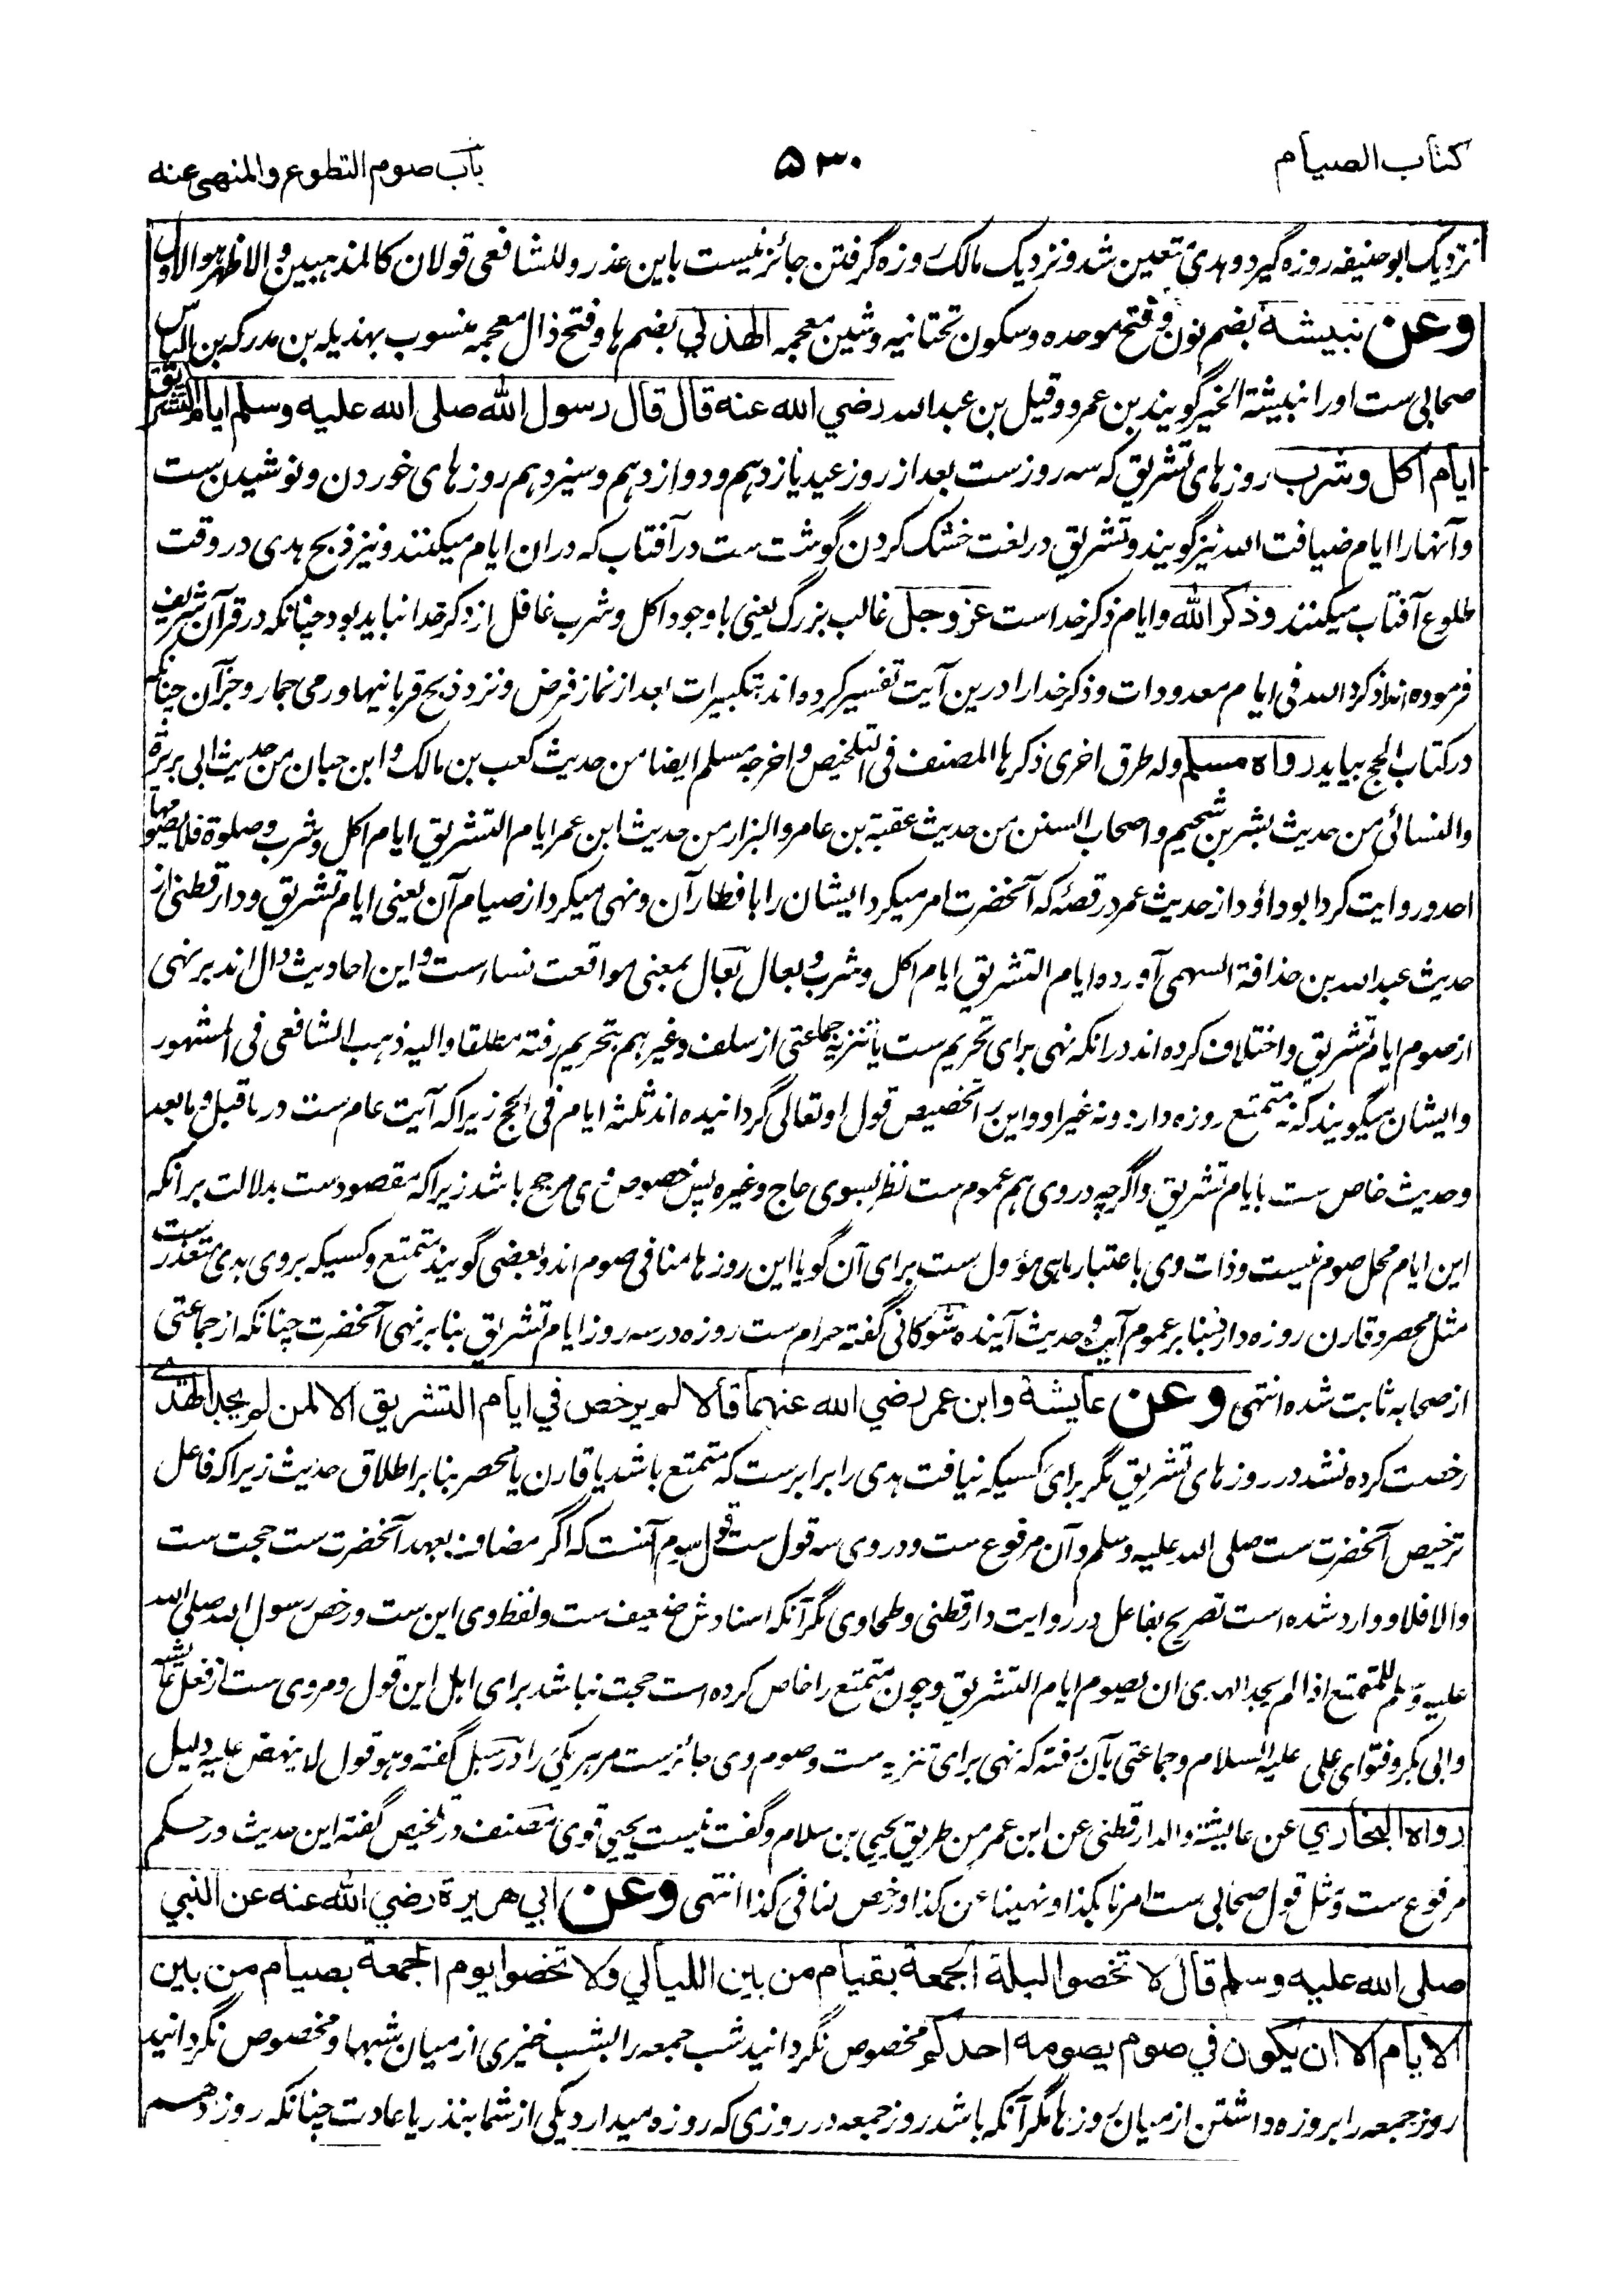 كتاب الصيام
۵۳۰
باب صوم التطوع والمنهي عنه
نزدیک ابوحنیفه روزه گیرد و هدی متعین شد و نزدیک مالک روزه گرفتن جائز نیست باین عذر و للشافعی قولان کالمذهبین والاظهر هو الاول
وعن نبیشة بضم نون و فتح موحده و سکون تحتانیه و شین معجمه الهذلي بضم ها و فتح ذال معجمه منسوب بهذیله بن مدرکه بن الیاس
صحابی ست اورا نبیشة الخیر گویند بن عمرو و قیل بن عبدالله رضي الله عنه قال قال رسول الله صلى الله عليه وسلم ايام التشريق
ايام اكل وشرب روزهای تشریق که سه روزست بعد از روز عید یازدهم و دوازدهم و سیزدهم روزهای خوردن و نوشیدن ست
و آنها را ایام ضیافت الله نیز گویند و تشریق در لغت خشک کردن گوشت ست در آفتاب که دران ایام میکنند و نیز ذبح هدی در وقت
طلوع آفتاب میکنند وذكر الله و ایام ذکر خداست عز وجل غالب بزرگ یعنی با وجود اکل و شرب غافل از ذکر خدا نباید بود چنانکه در قرآن شریف
فرموده اند اذکروا الله فی ایام معدودات و ذکر خدا را درین آیت تفسیر کرده اند بتکبیرات بعد از نماز فرض و نزد ذبح قربانیها و رمی جمار و جز آن چنانکه
در کتاب الحج بیاید رواه مسلم وله طرق اخری ذکرها المصنف فی التلخیص و اخرجه مسلم ایضا من حدیث کعب بن مالک و ابن حبان من حدیث ابی هریرة
والنسائی من حدیث بشر بن سحیم و اصحاب السنن من حدیث عقبة بن عامر والبزار من حدیث ابن عمر ایام التشریق ایام اکل و شرب و صلوة فلا یصومها
احد و روایت کرد ابوداؤد از حدیث عمر در قصهٔ که آنحضرت امر میکرد ایشان را بافطار آن و نهی میکرد از صیام آن یعنی ایام تشریق و دارقطنی از
حدیث عبدالله بن حذافة السهمی آورده ایام التشریق ایام اکل و شرب و بعال بعال بمعنی مواقعت نساء ست و این احادیث دال اند بر نهی
از صوم ایام تشریق و اختلاف کرده اند درانکه نهی برای تحریم ست یا تنزیه جماعتی از سلف و غیرهم بتحریم رفته مطلقا و الیه ذهب الشافعی فی المشهور
و ایشان میگویند که نه متمتع روزه دارد و نه غیر او و این را تخصیص قول او تعالی گردانیده اند ثلثة ایام فی الحج زیراکه آیت عام ست در ماقبل و مابعد
و حدیث خاص ست بایام تشریق و اگرچه در وی هم عموم ست نظر بسوی حاج و غیره پس خصوص وی مرجح باشد زیراکه مقصودست بدلالت برانکه
این ایام محل صوم نیست و ذات وی باعتبار ما هی مؤول ست برای آن گویا این روزها منافی صوم اند و بعضی گویند متمتع و کسیکه بر وی هدی متعذر ست
مثل محصر و قارن روزه دارد بنابر عموم آیت و حدیث آینده شوکانی گفته حرام ست روزه در سه روز ایام تشریق بنابر نهی آنحضرت چنانکه از جماعتی
از صحابه ثابت شده انتهی وعن عايشة وابن عمر رضي الله عنهما قالا لم يرخص في ايام التشريق الا لمن لم يجد الهدي
رخصت کرده نشد در روزهای تشریق مگر برای کسیکه نیافت هدی را برابرست که متمتع باشد یا قارن یا محصر بنابر اطلاق حدیث زیراکه فاعل
ترخیص آنحضرت ست صلی الله علیه وسلم و آن مرفوع ست و در وی سه قول ست قول سوم آنست که اگر مضاف بعهد آنحضرت ست حجت ست
والا فلا و وارد شده است تصریح بفاعل در روایت دارقطنی و طحاوی مگر آنکه اسنادش ضعیف ست و لفظ وی این ست و رخص رسول الله صلی الله
علیه وسلم للمتمتع اذا لم یجد الهدی ان یصوم ایام التشریق و چون متمتع را خاص کرده است حجت نباشد برای اهل این قول و مروی ست از فعل عایشه
و ابی بکر و فتوای علی علیه السلام و جماعتی بآن رفته که نهی برای تنزیه ست و صوم وی جائزست مر هر یکی را در سبل گفته و هو قول لا ینهض علیه دلیل
رواه البخاري عن عایشة والدارقطنی عن ابن عمر من طریق یحیی بن سلام و گفت نیست یحیی قوی مصنف در تلخیص گفته این حدیث در حکم
مرفوع ست و مثل قول صحابی ست امرنا بکذا و نهینا عن کذا و رخص لنا فی کذا انتهی وعن ابي هريرة رضي الله عنه عن النبي
صلى الله عليه وسلم قال لا تخصوا ليلة الجمعة بقيام من بين الليالي ولا تخصوا يوم الجمعة بصيام من بين
الايام الا ان يكون في صوم يصومه احدكم مخصوص نگردانید شب جمعه را بشب خیزی از میان شبها و مخصوص نگردانید
روز جمعه را بروزه داشتن از میان روزها مگر آنکه باشد روز جمعه در روزی که روزه میدارد یکی از شما بنذر یا عادت چنانکه روز دهم